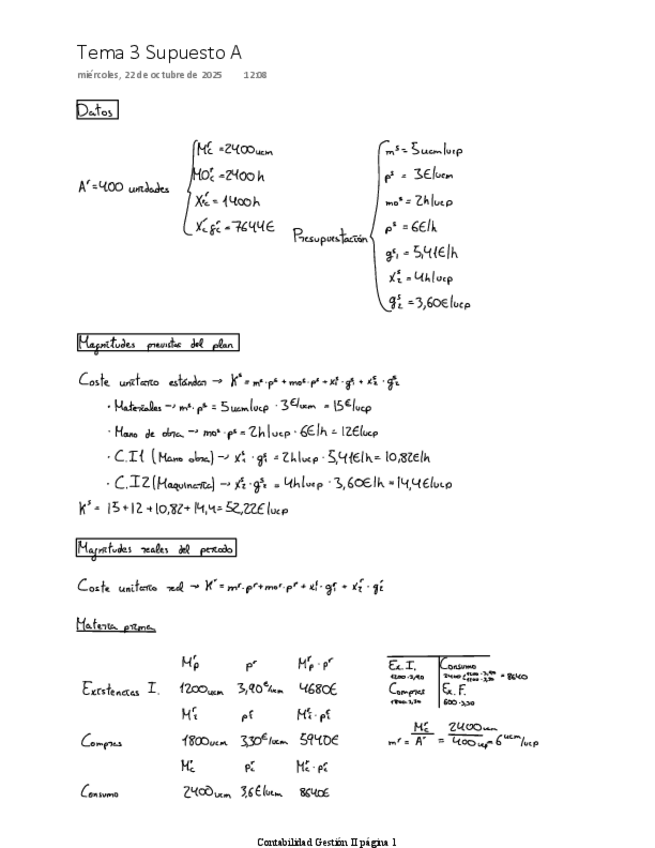 Tema 3 Supuesto A
miércoles, 22 de octubre de 2025 12:08
Datos
Aʳ = 400 unidades
Mᶜʳ = 2400 ucm
MOᶜʳ = 2400 h
X₂ᶜʳ = 1400 h
Xᶜʳ gᶜʳ = 7644€
Presupuestación
mˢ = 5 ucm/ucp
pˢ = 3€/ucm
moˢ = 2h/ucp
pˢ = 6€/h
gˢ₁ = 5,41€/h
xˢ₂ = 4h/ucp
gˢ₂ = 3,60€/ucp
Magnitudes previstas del plan
Coste unitario estándar → Kˢ = mˢ·pˢ + moˢ·pˢ + xˢ₁·gˢ₁ + xˢ₂·gˢ₂
· Materiales → mˢ·pˢ = 5ucm/ucp · 3€/ucm = 15€/ucp
· Mano de obra → moˢ·pˢ = 2h/ucp · 6€/h = 12€/ucp
· C.I1 (Mano obra) → xˢ₁·gˢ₁ = 2h/ucp · 5,41€/h = 10,82€/h
· C.I2 (Maquinaria) → xˢ₂·gˢ₂ = 4h/ucp · 3,60€/h = 14,4€/ucp
Kˢ = 15+12+10,82+14,4 = 52,22€/ucp
Magnitudes reales del periodo
Coste unitario real → Kʳ = mʳ·pʳ + moʳ·pʳ + xʳ₁·gʳ₁ + xʳ₂·gʳ₂
Materia prima
Mʳₚ pʳ Mʳₚ·pʳ
Existencias I. 1200ucm 3,90€/ucm 4680€
Mʳᵢ pʳᵢ Mʳᵢ·pʳᵢ
Compras 1800ucm 3,30€/ucm 5940€
Mʳᶜ pʳᶜ Mʳᶜ·pʳᶜ
Consumo 2400ucm 3,6€/ucm 8640€
Ex. I. Consumo
1200·3,90 2400 1200·3,90 1200·3,30 = 8640
Compras Ex. F.
1800·3,30 600·3,30
mʳ = Mʳᶜ/Aʳ = 2400ucm/400up = 6 ucm/ucp
Contabilidad Gestión II página 1